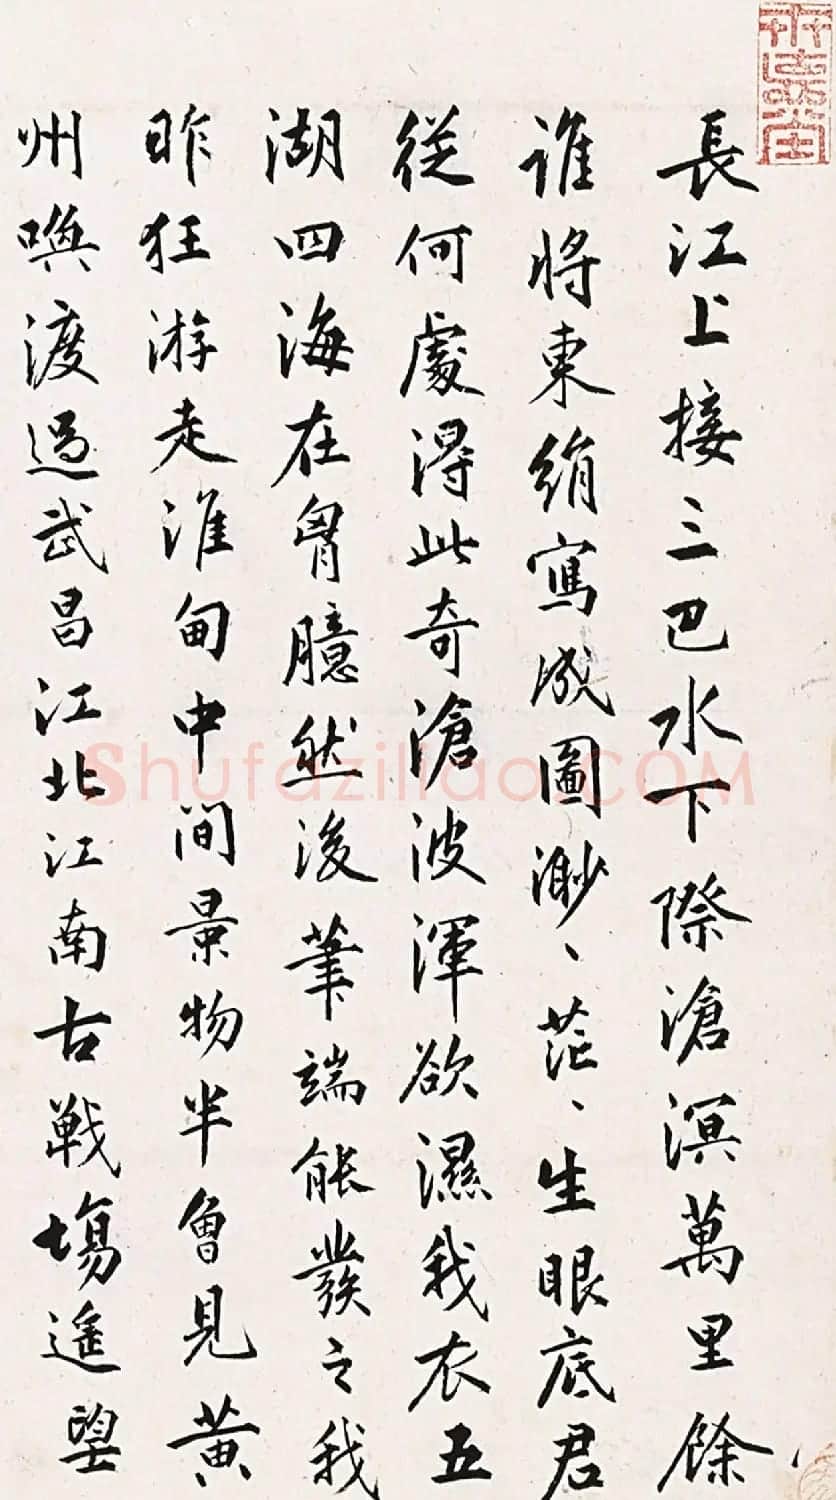 長江上接三巴水下際滄溟萬里餘
誰將東絹寫成圖渺、茫、生眼底君
從何處得此奇滄波渾欲濕我衣五
湖四海在胷臆然後筆端能發之我
昨狂游走淮甸中間景物半曾見黃
州喚渡過武昌江北江南古戰場遙望
Shufaziliao.COM